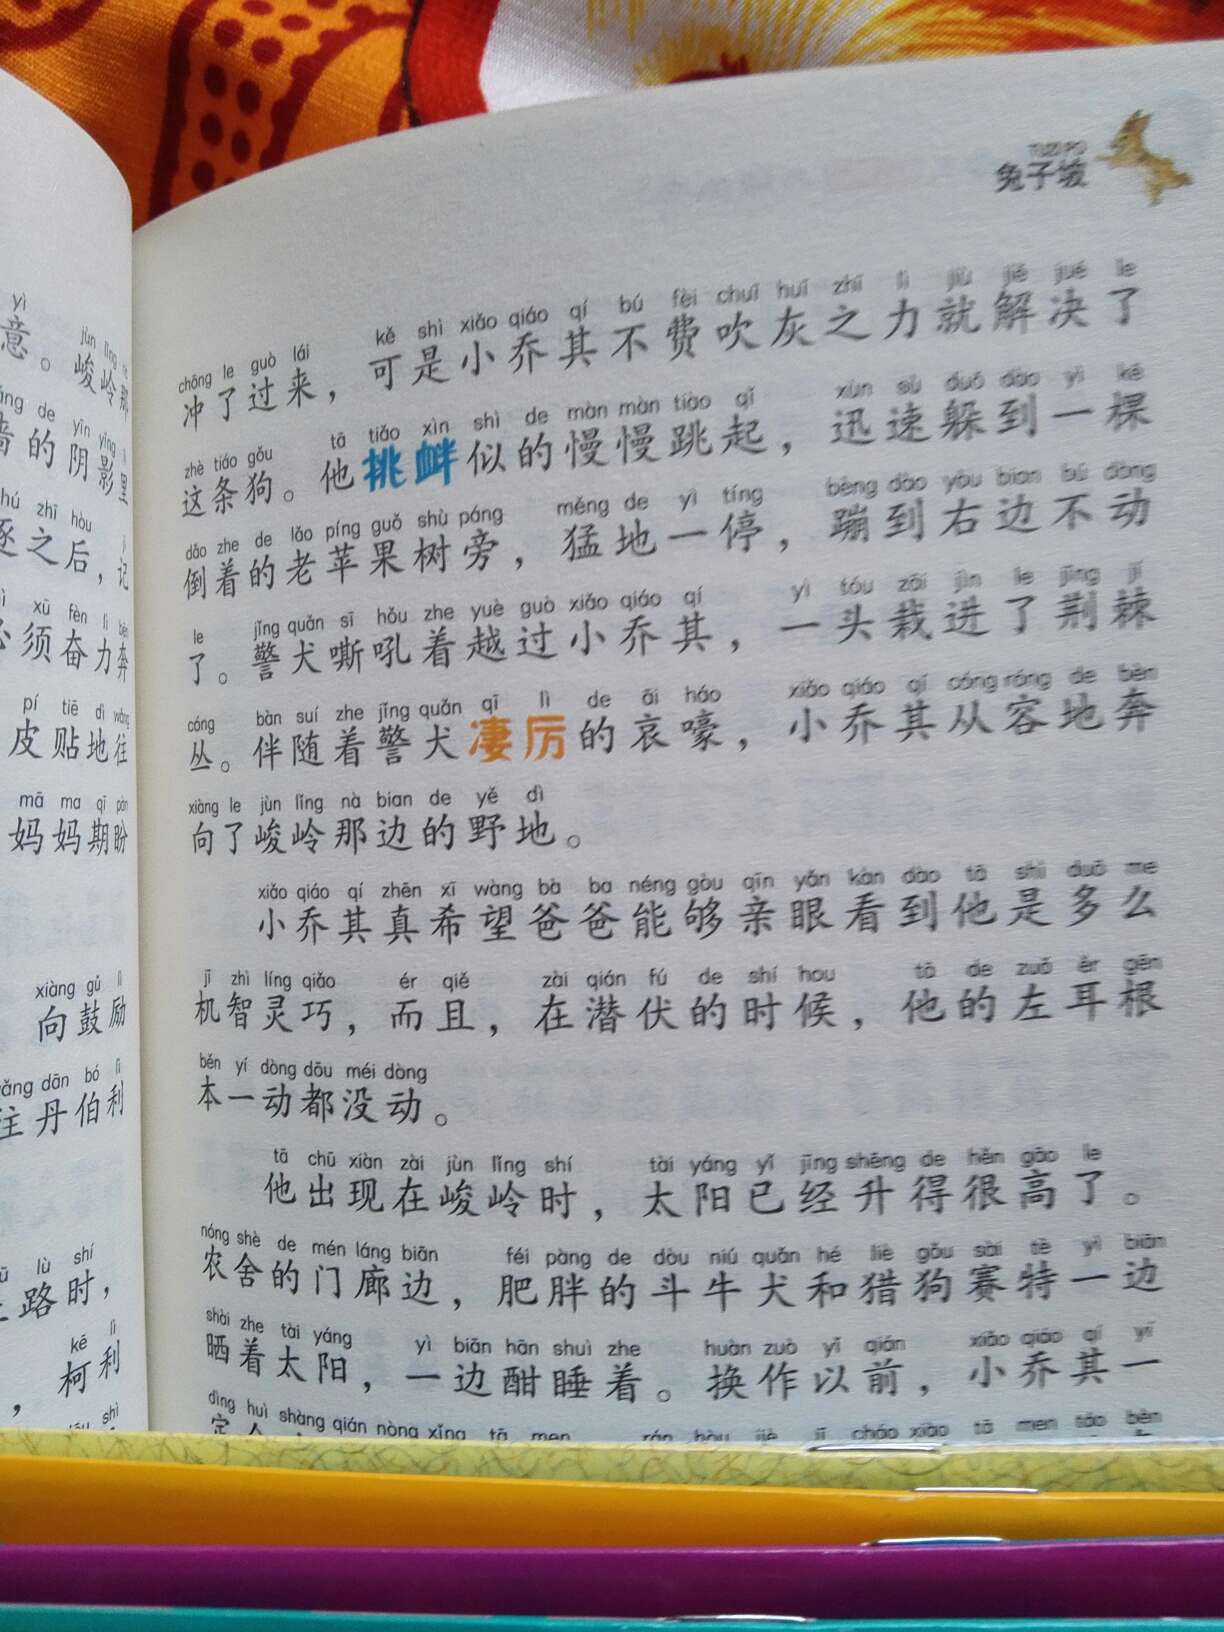 yì
意。
jùn lǐng nà
峻岭那
de yīn yǐng
的阴影里
zhī hòu
之后,记
xū fèn lì bēn
须奋力奔
pí tiē dì wǎng
皮贴地往
mā ma qī pàn
妈妈期盼
xiàng gǔ lì
向鼓励
dān bó lì
丹伯利
lù shí
路时,
kē lì
柯利
TUZI PO
兔子坡
chōng le guò lái kě shì xiǎo qiáo qí bú fèi chuī huī zhī lì jiù jiě jué le
冲了过来,可是小乔其不费吹灰之力就解决了
zhè tiáo gǒu tā tiǎo xìn shì de màn màn tiào qǐ xùn sù duǒ dào yì kē
这条狗。他挑衅似的慢慢跳起,迅速躲到一棵
dǎo zhe de lǎo píng guǒ shù páng měng de yì tíng bèng dào yòu bian bú dòng
倒着的老苹果树旁,猛地一停,蹦到右边不动
le jǐng quǎn sī hǒu zhe yuè guò xiǎo qiáo qí yì tóu zāi jìn le jīng jí
了。警犬嘶吼着越过小乔其,一头栽进了荆棘
cóng bàn suí zhe jǐng quǎn qī lì de āi háo xiǎo qiáo qí cóng róng de bèn
丛。伴随着警犬凄厉的哀嚎,小乔其从容地奔
xiàng le jùn lǐng nà bian de yě dì
向了峻岭那边的野地。
xiǎo qiáo qí zhēn xī wàng bà ba néng gòu qīn yǎn kàn dào tā shì duō me
小乔其真希望爸爸能够亲眼看到他是多么
jī zhì líng qiǎo ér qiě zài qián fú de shí hou tā de zuǒ ěr gēn
机智灵巧,而且,在潜伏的时候,他的左耳根
běn yí dòng dōu méi dòng
本一动都没动。
tā chū xiàn zài jùn lǐng shí tài yáng yǐ jīng shēng de hěn gāo le
他出现在峻岭时,太阳已经升得很高了。
nóng shè de mén láng biān féi pàng de dòu niú quǎn hé liè gǒu sài tè yì biān
农舍的门廊边,肥胖的斗牛犬和猎狗赛特一边
shài zhe tài yáng yì biān hān shuì zhe huàn zuò yǐ qián xiǎo qiáo qí yī
晒着太阳,一边酣睡着。换作以前,小乔其一
dìng huì shàng qián nòng xǐng tā men rán hòu jiè jī cháo xiào tā men táo bèn